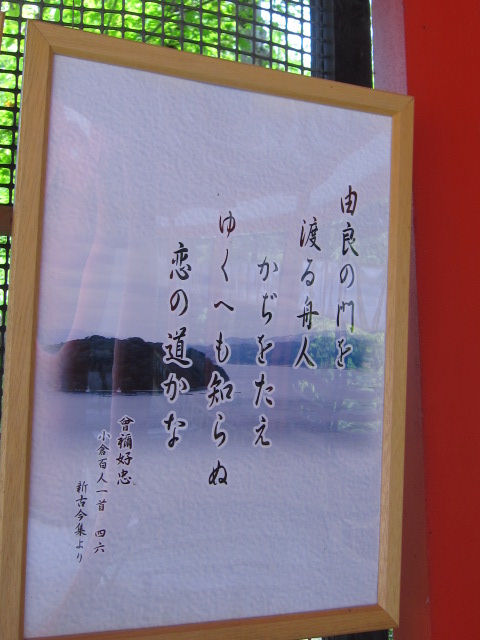 由良の門を
渡る舟人
かぢをたえ
ゆくへも知らぬ
恋の道かな
曾禰好忠
小倉百人一首 四六
新古今集より